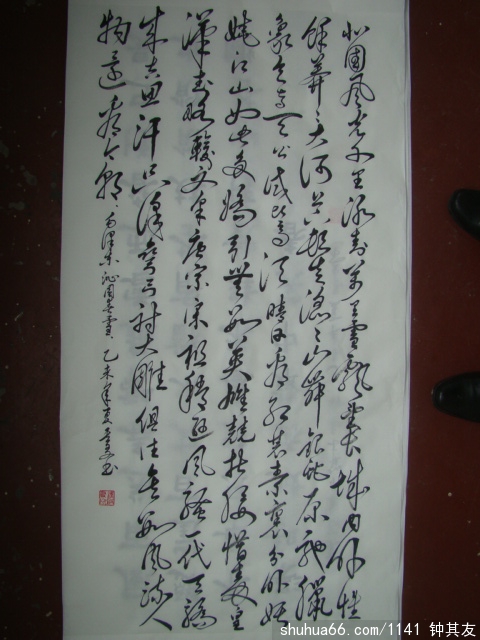 北國風光千里冰封万里雪飘長城内外惟
馀莽莽大河上下頓失滔滔山舞銀蛇原馳臘
象欲与天公试比高须晴日看红装素裹分外妖
娆江山如此多嬌引無数英雄競折腰惜秦皇
漢武略輸文采唐宗宋祖稍遜風騷一代天驕
成吉思汗只識弯弓射大雕俱往矣数風流人
物還看今朝 毛澤東沁園春雪 乙未年夏 书
shuhua66.com/1141 钟其友